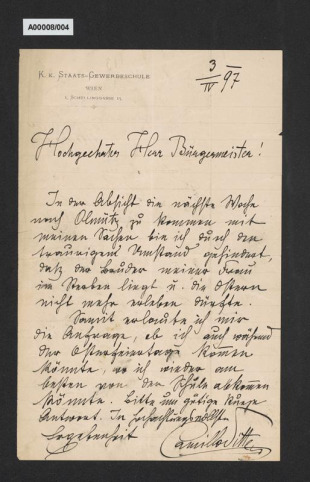 A00008/004
K. k. Staats-Gewerbeschule
Wien
I. Schellinggasse 13
3/IV 97
Hochgeehrter Herr Bürgermeister!
In der Absicht die nächste Woche
nach Olmütz zu kommen mit
meinen Sachen bin ich durch den
traurigen Umstand gehindert,
daß der Bruder meiner Frau
im Sterben liegt u. die Ostern
nicht mehr erleben dürfte.
Somit erlaube ich mir
die Anfrage, ob ich auch während
der Osterfeiertage komen
könnte, wo ich wieder am
besten von der Schule abkomen
könnte. Bitte um gütige kurze
Antwort. In hochachtungsvollster
Ergebenheit
Camillo Sitte